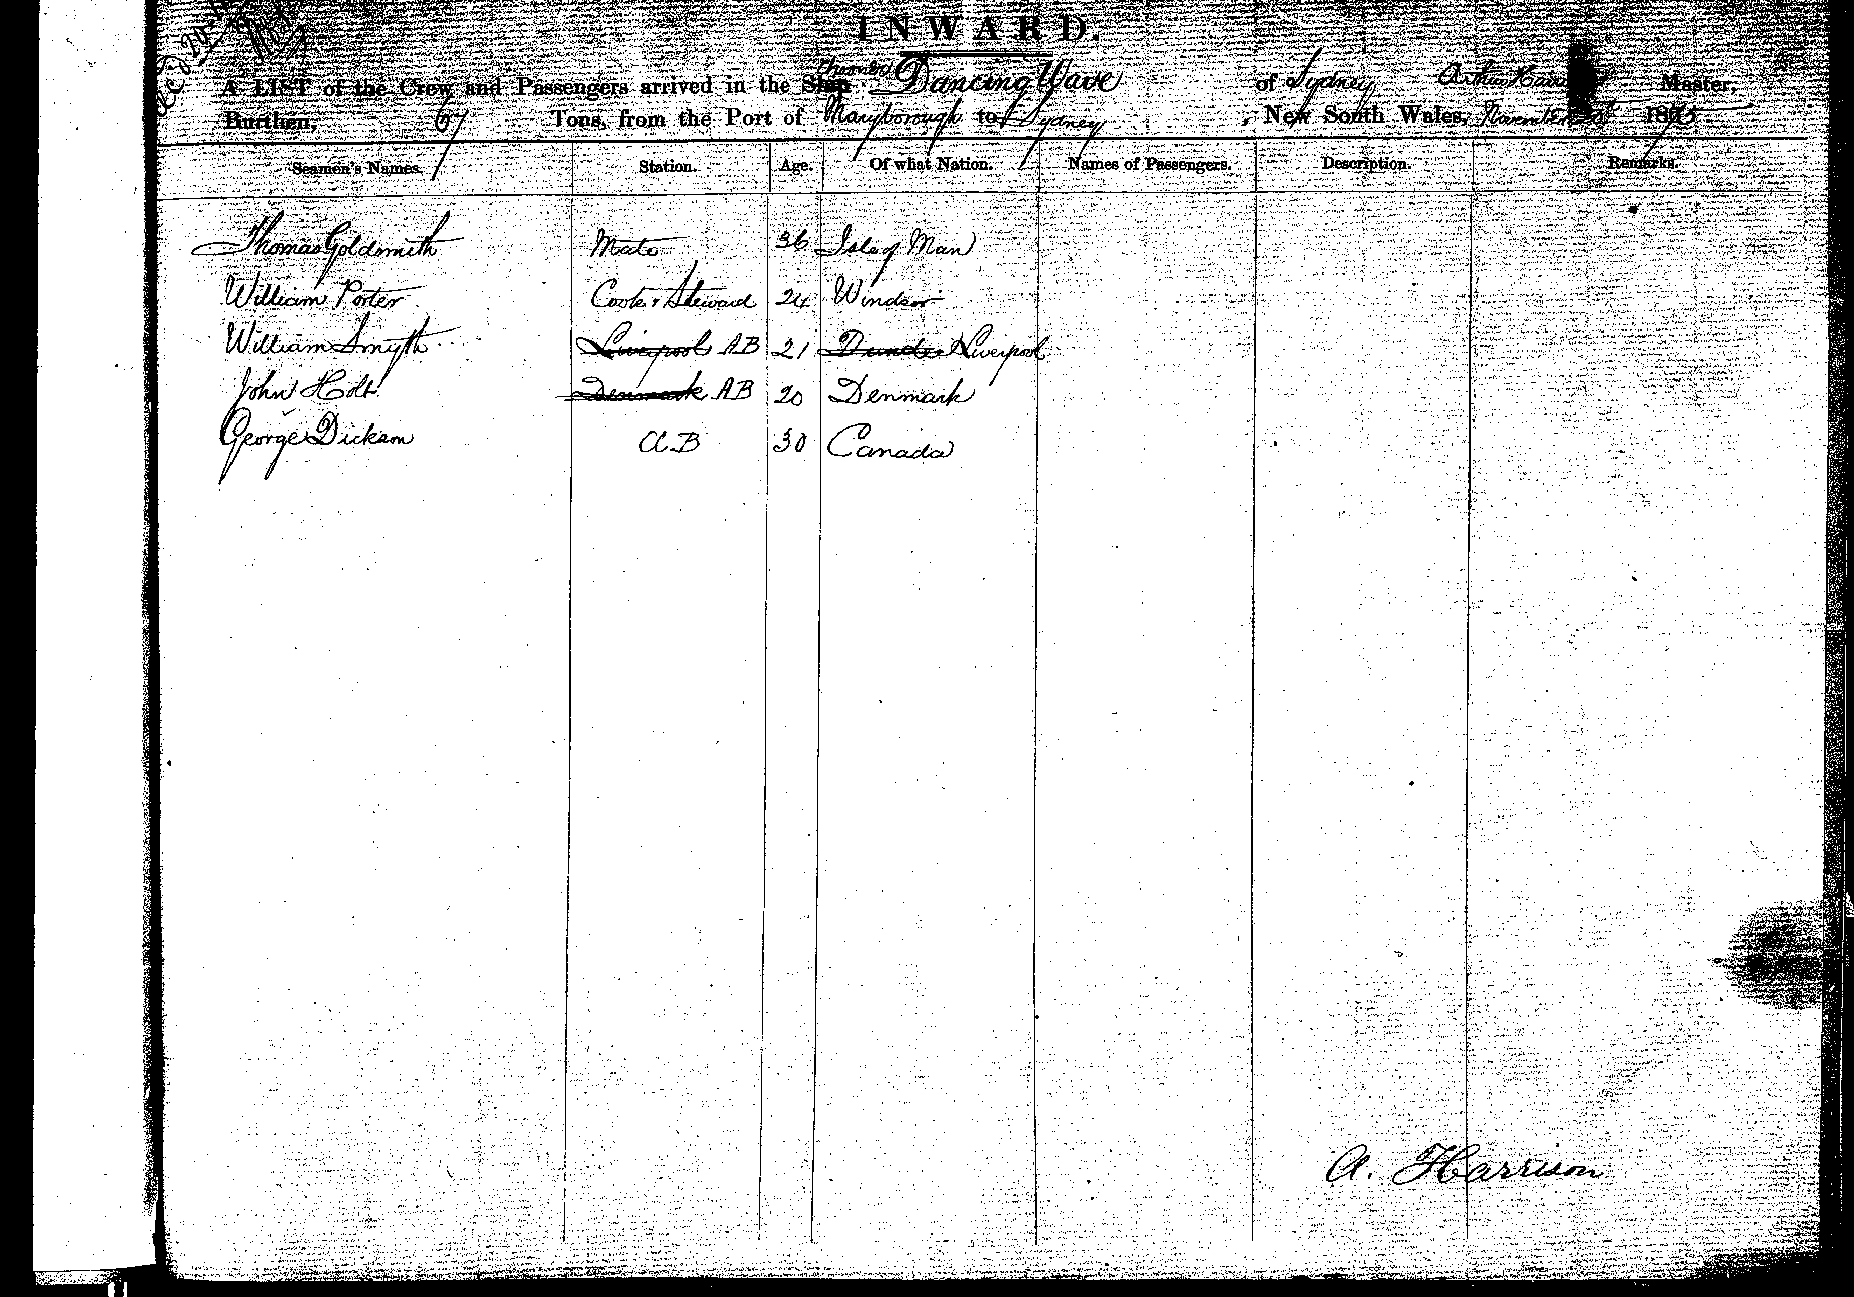 INWARD.
A LIST of the Crew and Passengers arrived in the Ship Dancing Wave of Sydney Arthur Master,
Burthen, 67 Tons, from the Port of Maryborough to Sydney, New South Wales, November 1875
Seamen's Names. Station. Age. Of what Nation. Names of Passengers. Description. Remarks.
Thomas Goldsmith Mate 36 Isle of Man
William Porter Cook & Steward 24 Windsor
William Smyth Liverpool AB 21 Dundee Liverpool
John Holt Denmark AB 20 Denmark
George Dickson AB 30 Canada
A. Harrison